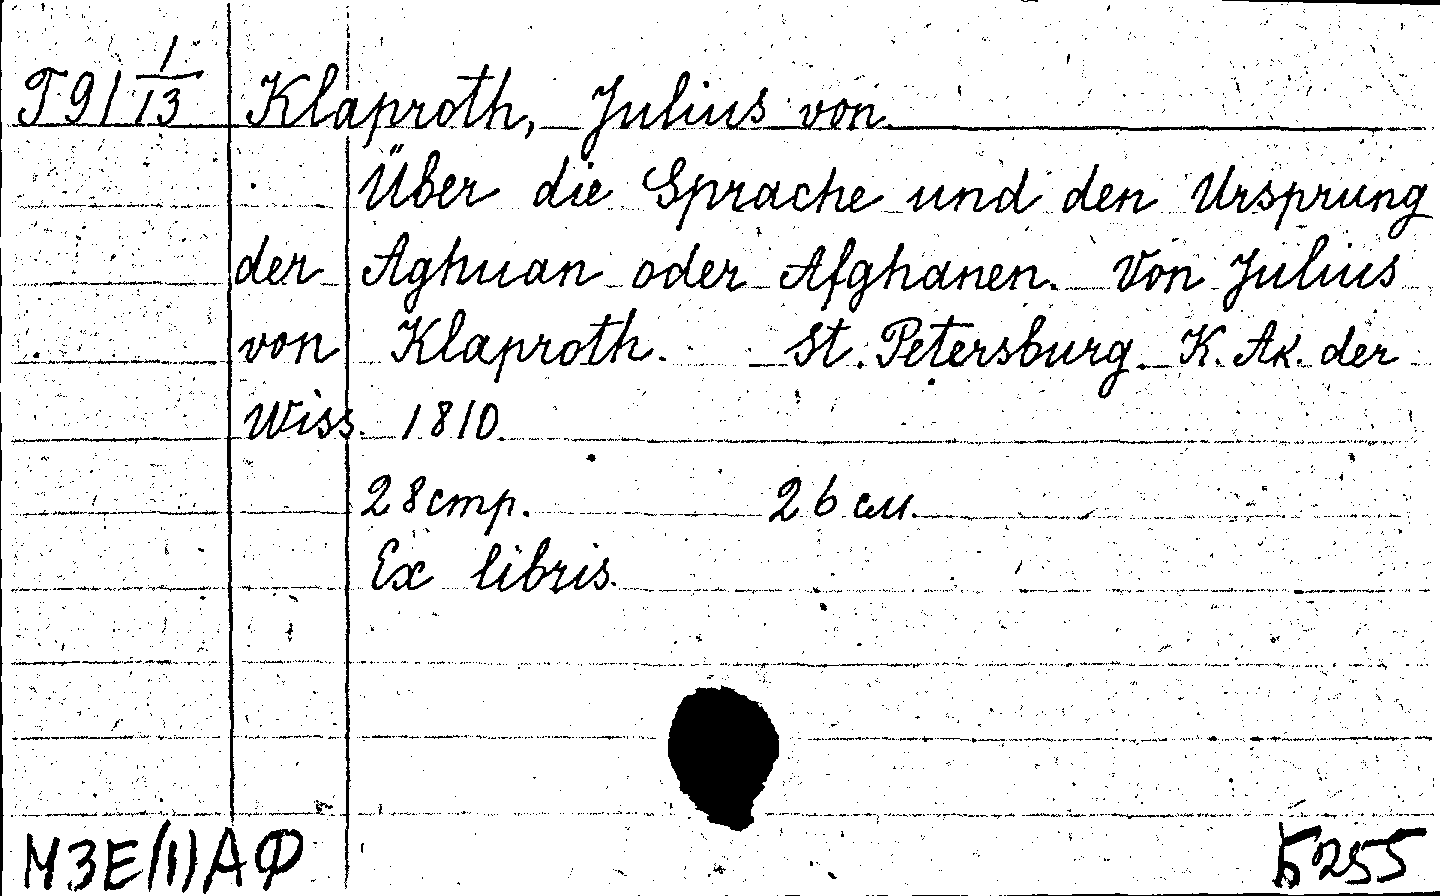 T91 1/13 Klaproth, Julius von.
Über die Sprache und den Ursprung
der Aghuan oder Afghanen. Von Julius
von Klaproth. St. Petersburg. K. Ak. der
Wiss. 1810.
28 стр. 26 см.
Ex libris.
МЗЕ(1)АФ Б255